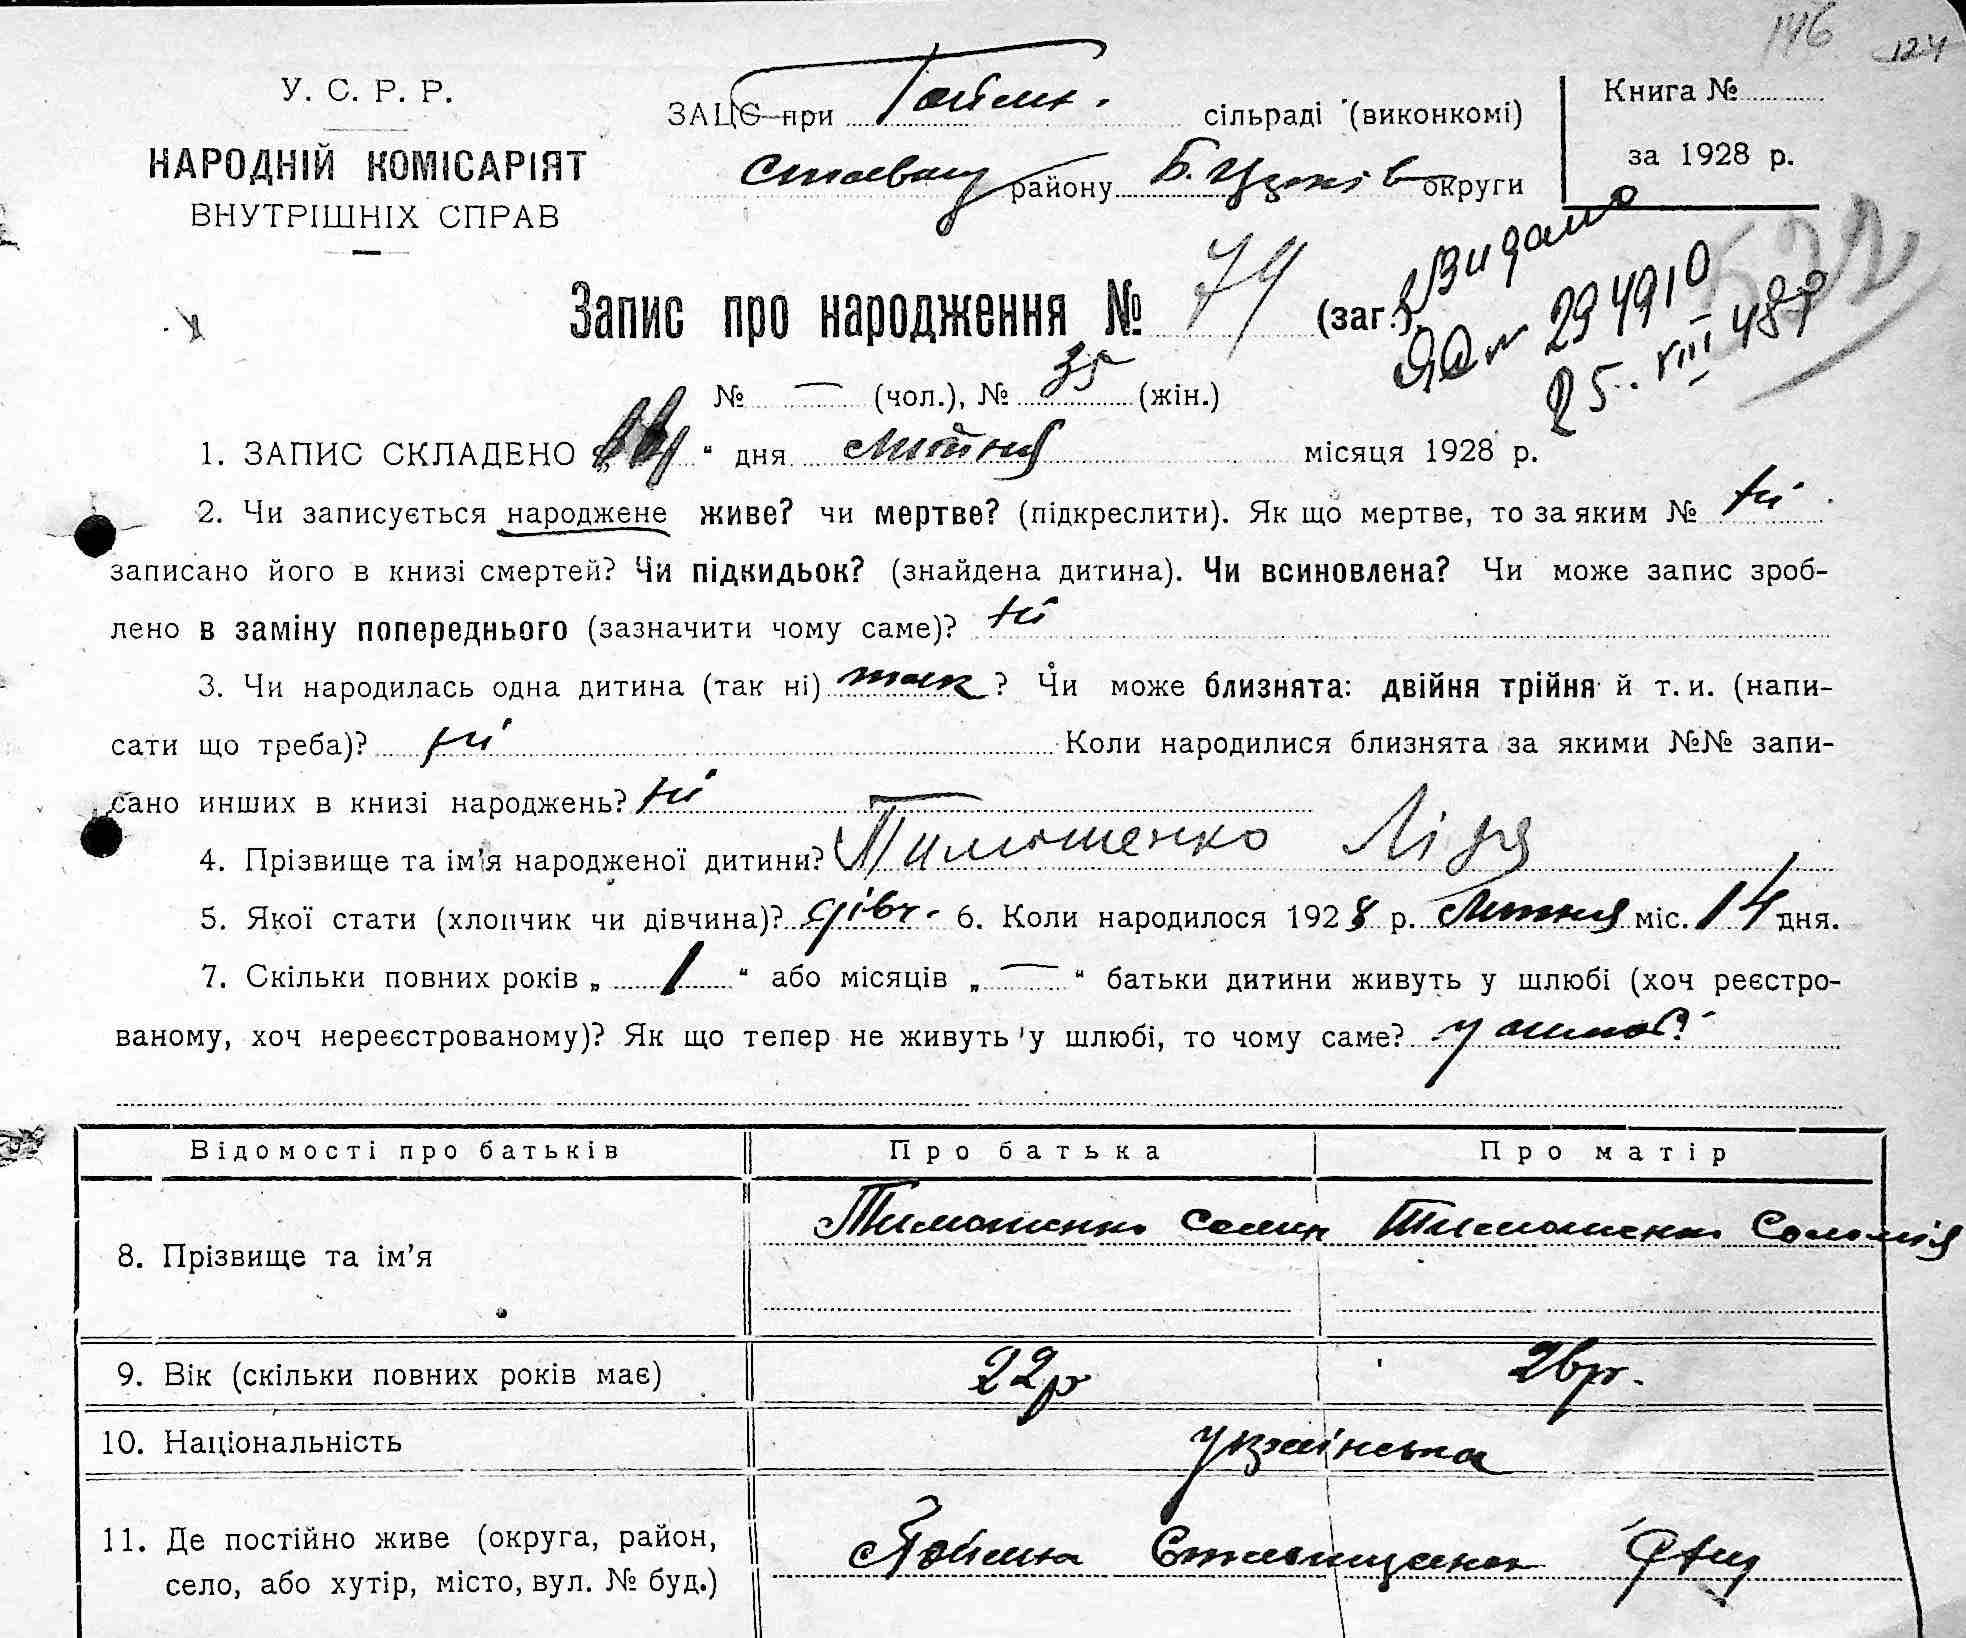 146 124
У. С. Р. Р.
НАРОДНІЙ КОМІСАРІЯТ
ВНУТРІШНІХ СПРАВ
ЗАЦС при сільраді (виконкомі)
району округи
Книга №
за 1928 р.
Видано
294910
25. VIII 48р
Запис про народження № 74 (заг.)
№ — (чол.), № 35 (жін.)
1. ЗАПИС СКЛАДЕНО „ “ дня місяця 1928 р.
2. Чи записується народжене живе? чи мертве? (підкреслити). Як що мертве, то за яким № ні
записано його в книзі смертей? Чи підкидьок? (знайдена дитина). Чи всиновлена? Чи може запис зроб-
лено в заміну попереднього (зазначити чому саме)? ні
3. Чи народилась одна дитина (так ні) так ? Чи може близнята: двійня трійня й т. и. (напи-
сати що треба)? ні Коли народилися близнята за якими №№ запи-
сано инших в книзі народжень? ні
4. Прізвище та ім'я народженої дитини? Тимошенко Ліда
5. Якої стати (хлопчик чи дівчина)? дівч. 6. Коли народилося 1928 р. міс. 14 дня.
7. Скільки повних років „ 1 “ або місяців „ — “ батьки дитини живуть у шлюбі (хоч реєстро-
ваному, хоч нереєстрованому)? Як що тепер не живуть у шлюбі, то чому саме? у шлюбі
Відомості про батьків Про батька Про матір
8. Прізвище та ім'я Тимошенко Семен Тимошенко Соломія
9. Вік (скільки повних років має) 22р 26р.
10. Національність українська
11. Де постійно живе (округа, район,
село, або хутір, місто, вул. № буд.)